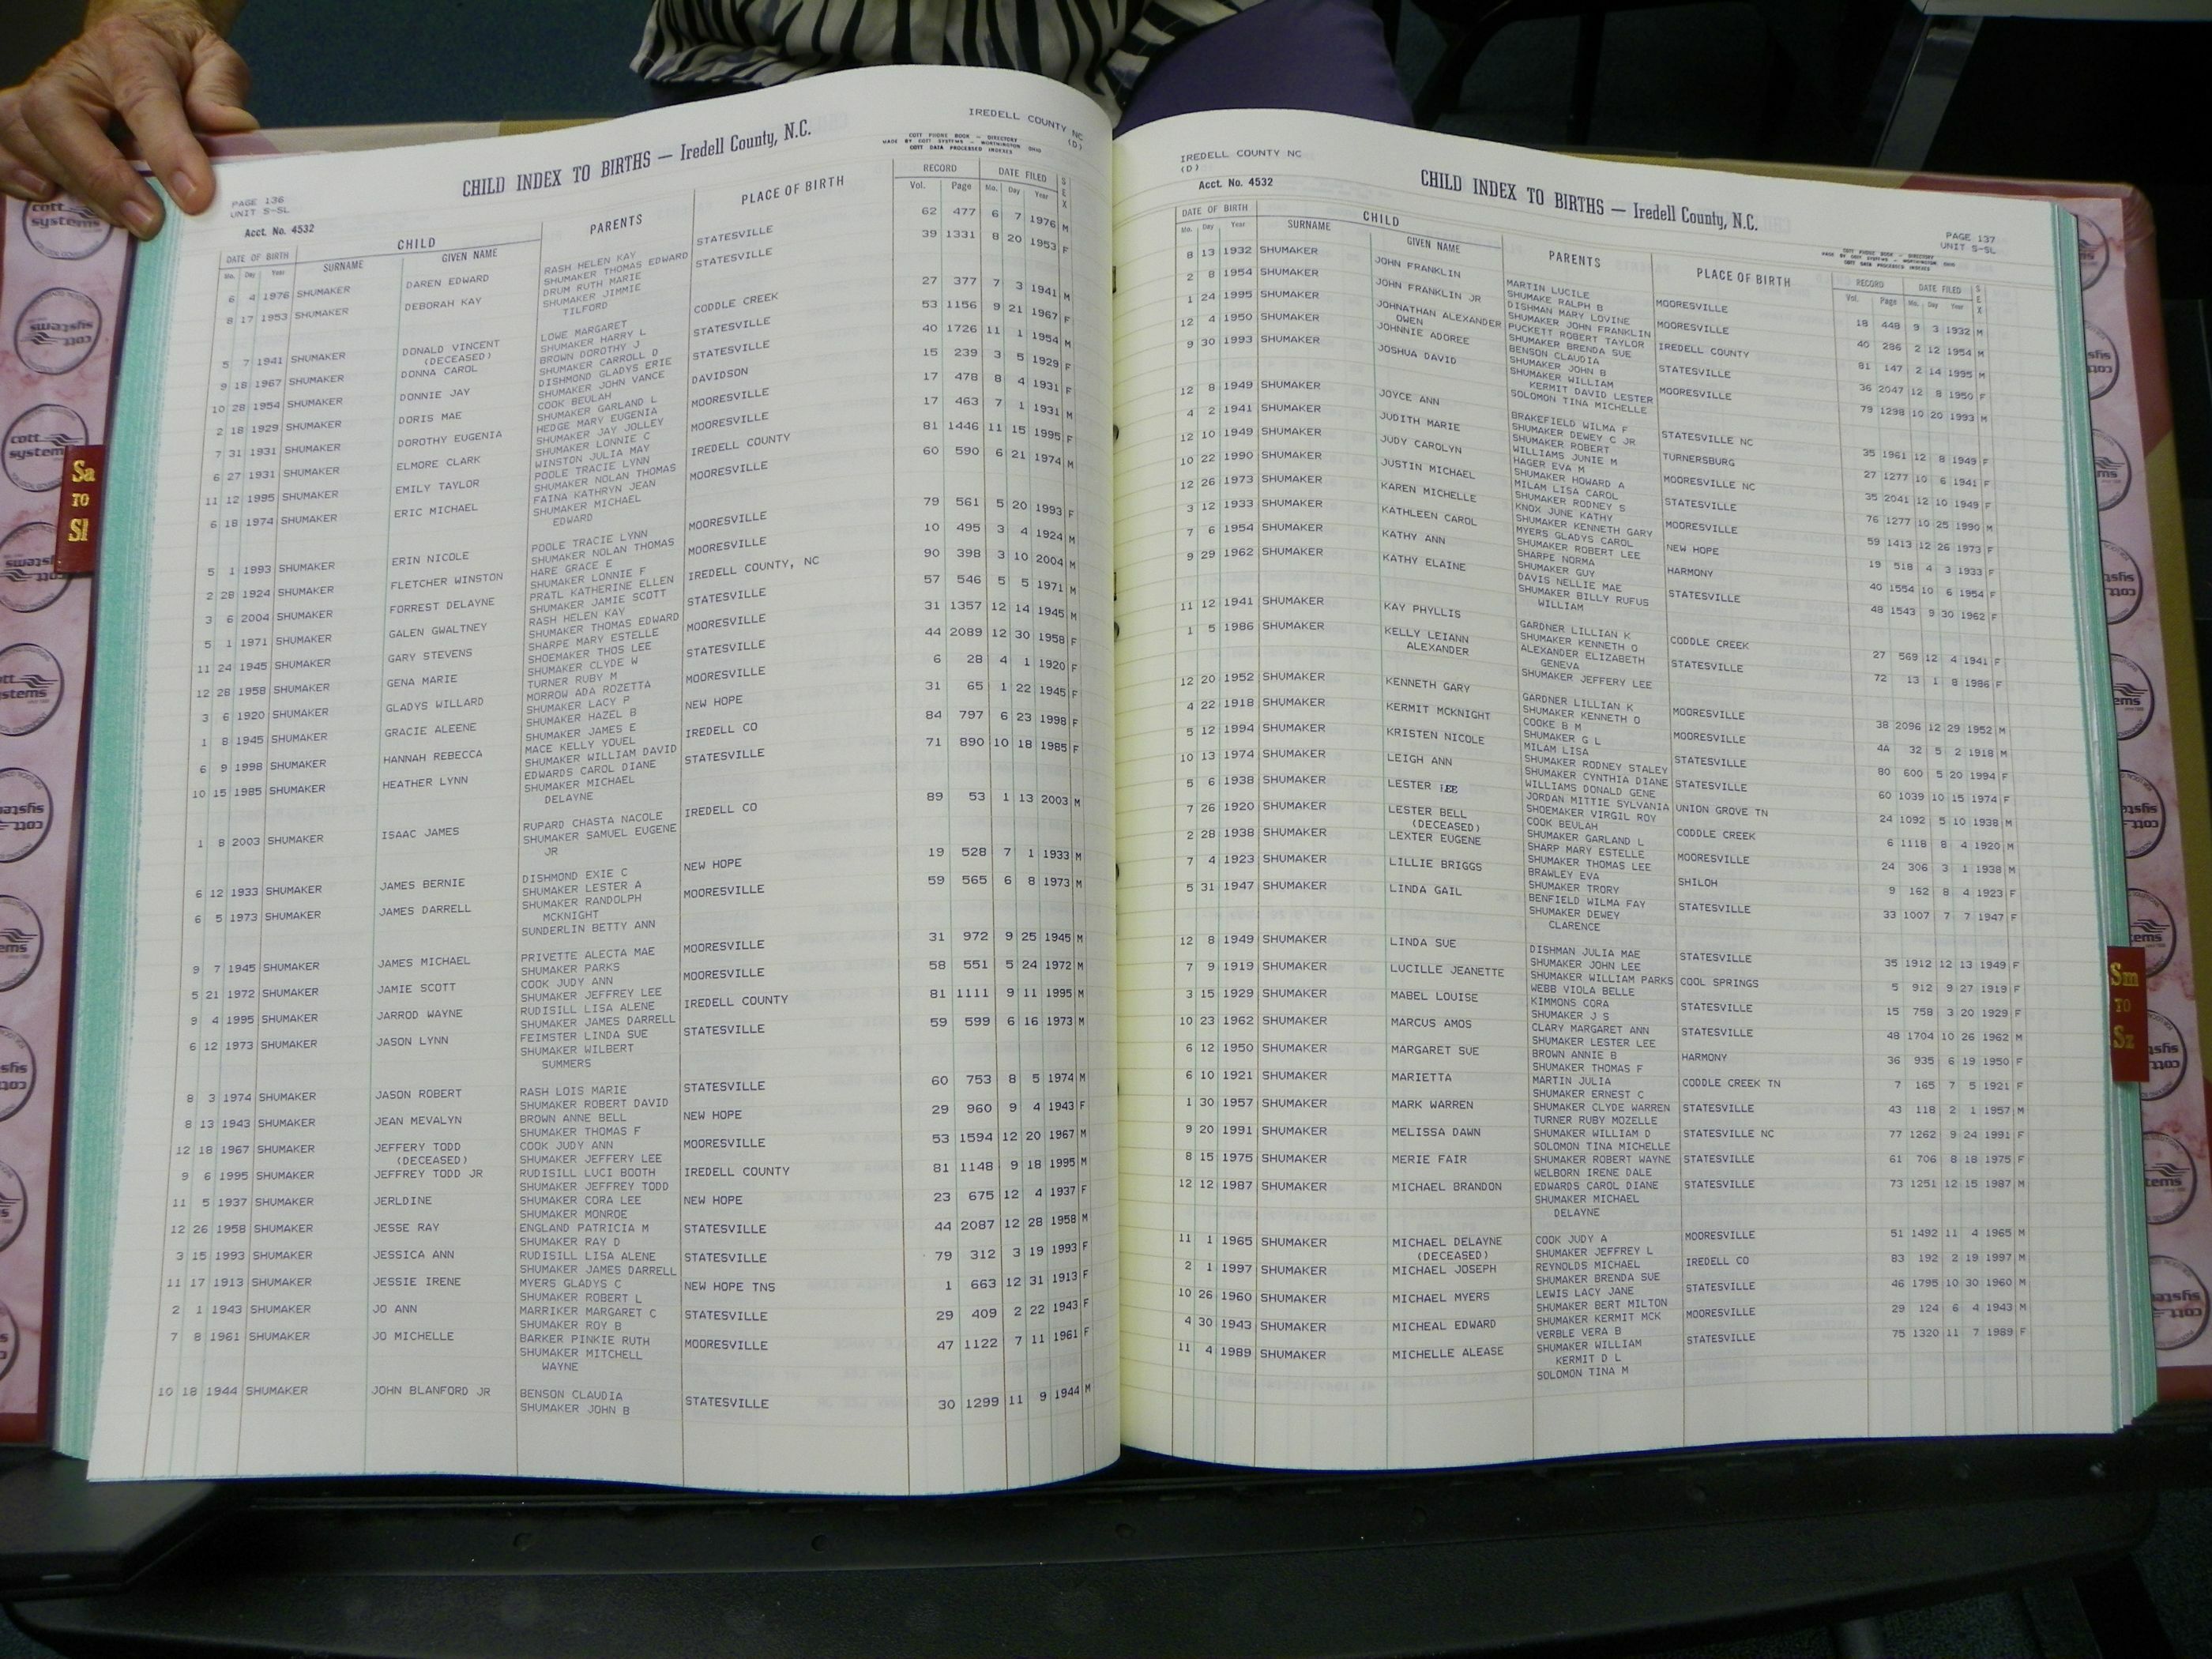 IREDELL COUNTY NC
(D)
CHILD INDEX TO BIRTHS — Iredell County, N.C.
COTT PHONE BOOK - DIRECTORY
MADE BY COTT SYSTEMS - WORTHINGTON OHIO
COTT DATA PROCESSED INDEXES
PAGE 136
UNIT S-SL
Acct. No. 4532
DATE OF BIRTH CHILD PARENTS PLACE OF BIRTH RECORD DATE FILED SEX
Mo. Day Year SURNAME GIVEN NAME Vol. Page Mo. Day Year
6 4 1976 SHUMAKER DAREN EDWARD RASH HELEN KAY STATESVILLE 62 477 6 7 1976 M
SHUMAKER THOMAS EDWARD
8 17 1953 SHUMAKER DEBORAH KAY DRUM RUTH MARIE STATESVILLE 39 1331 8 20 1953 F
SHUMAKER JIMMIE
TILFORD
5 7 1941 SHUMAKER DONALD VINCENT LOWE MARGARET CODDLE CREEK 27 377 7 3 1941 M
(DECEASED) SHUMAKER HARRY L
9 18 1967 SHUMAKER DONNA CAROL BROWN DOROTHY J STATESVILLE 53 1156 9 21 1967 F
SHUMAKER CARROLL D
10 28 1954 SHUMAKER DONNIE JAY DISHMOND GLADYS ERIE STATESVILLE 40 1726 11 1 1954 M
SHUMAKER JOHN VANCE
2 18 1929 SHUMAKER DORIS MAE COOK BEULAH DAVIDSON 15 239 3 5 1929 F
SHUMAKER GARLAND L
7 31 1931 SHUMAKER DOROTHY EUGENIA HEDGE MARY EUGENIA MOORESVILLE 17 478 8 4 1931 F
SHUMAKER JAY JOLLEY
6 27 1931 SHUMAKER ELMORE CLARK SHUMAKER LONNIE C MOORESVILLE 17 463 7 1 1931 M
WINSTON JULIA MAY
11 12 1995 SHUMAKER EMILY TAYLOR POOLE TRACIE LYNN IREDELL COUNTY 81 1446 11 15 1995 F
SHUMAKER NOLAN THOMAS
6 18 1974 SHUMAKER ERIC MICHAEL FAINA KATHRYN JEAN MOORESVILLE 60 590 6 21 1974 M
SHUMAKER MICHAEL
EDWARD
5 1 1993 SHUMAKER ERIN NICOLE POOLE TRACIE LYNN MOORESVILLE 79 561 5 20 1993 F
SHUMAKER NOLAN THOMAS
2 28 1924 SHUMAKER FLETCHER WINSTON HARE GRACE E MOORESVILLE 10 495 3 4 1924 M
SHUMAKER LONNIE F
3 6 2004 SHUMAKER FORREST DELAYNE PRATL KATHERINE ELLEN IREDELL COUNTY, NC 90 398 3 10 2004 M
SHUMAKER JAMIE SCOTT
5 1 1971 SHUMAKER GALEN GWALTNEY RASH HELEN KAY STATESVILLE 57 546 5 5 1971 M
SHUMAKER THOMAS EDWARD
11 24 1945 SHUMAKER GARY STEVENS SHARPE MARY ESTELLE MOORESVILLE 31 1357 12 14 1945 M
SHOEMAKER THOS LEE
12 28 1958 SHUMAKER GENA MARIE SHUMAKER CLYDE W STATESVILLE 44 2089 12 30 1958 F
TURNER RUBY M
3 6 1920 SHUMAKER GLADYS WILLARD MORROW ADA ROZETTA MOORESVILLE 6 28 4 1 1920 F
SHUMAKER LACY P
1 8 1945 SHUMAKER GRACIE ALEENE SHUMAKER HAZEL B NEW HOPE 31 65 1 22 1945 F
SHUMAKER JAMES E
6 9 1998 SHUMAKER HANNAH REBECCA MACE KELLY YOUEL IREDELL CO 84 797 6 23 1998 F
SHUMAKER WILLIAM DAVID
10 15 1985 SHUMAKER HEATHER LYNN EDWARDS CAROL DIANE STATESVILLE 71 890 10 18 1985 F
SHUMAKER MICHAEL
DELAYNE
1 8 2003 SHUMAKER ISAAC JAMES RUPARD CHASTA NACOLE IREDELL CO 89 53 1 13 2003 M
SHUMAKER SAMUEL EUGENE
JR
6 12 1933 SHUMAKER JAMES BERNIE DISHMOND EXIE C NEW HOPE 19 528 7 1 1933 M
SHUMAKER LESTER A
6 5 1973 SHUMAKER JAMES DARRELL SHUMAKER RANDOLPH MOORESVILLE 59 565 6 8 1973 M
MCKNIGHT
SUNDERLIN BETTY ANN
9 7 1945 SHUMAKER JAMES MICHAEL PRIVETTE ALECTA MAE MOORESVILLE 31 972 9 25 1945 M
SHUMAKER PARKS
5 21 1972 SHUMAKER JAMIE SCOTT COOK JUDY ANN MOORESVILLE 58 551 5 24 1972 M
SHUMAKER JEFFREY LEE
9 4 1995 SHUMAKER JARROD WAYNE RUDISILL LISA ALENE IREDELL COUNTY 81 1111 9 11 1995 M
SHUMAKER JAMES DARRELL
6 12 1973 SHUMAKER JASON LYNN FEIMSTER LINDA SUE STATESVILLE 59 599 6 16 1973 M
SHUMAKER WILBERT
SUMMERS
8 3 1974 SHUMAKER JASON ROBERT RASH LOIS MARIE STATESVILLE 60 753 8 5 1974 M
SHUMAKER ROBERT DAVID
8 13 1943 SHUMAKER JEAN MEVALYN BROWN ANNE BELL NEW HOPE 29 960 9 4 1943 F
SHUMAKER THOMAS F
12 18 1967 SHUMAKER JEFFERY TODD COOK JUDY ANN MOORESVILLE 53 1594 12 20 1967 M
(DECEASED) SHUMAKER JEFFERY LEE
9 6 1995 SHUMAKER JEFFREY TODD JR RUDISILL LUCI BOOTH IREDELL COUNTY 81 1148 9 18 1995 M
SHUMAKER JEFFREY TODD
11 5 1937 SHUMAKER JERLDINE SHUMAKER CORA LEE NEW HOPE 23 675 12 4 1937 F
SHUMAKER MONROE
12 26 1958 SHUMAKER JESSE RAY ENGLAND PATRICIA M STATESVILLE 44 2087 12 28 1958 M
SHUMAKER RAY D
3 15 1993 SHUMAKER JESSICA ANN RUDISILL LISA ALENE STATESVILLE 79 312 3 19 1993 F
SHUMAKER JAMES DARRELL
11 17 1913 SHUMAKER JESSIE IRENE MYERS GLADYS C NEW HOPE TNS 1 663 12 31 1913 F
SHUMAKER ROBERT L
2 1 1943 SHUMAKER JO ANN MARRIKER MARGARET C STATESVILLE 29 409 2 22 1943 F
SHUMAKER ROY B
7 8 1961 SHUMAKER JO MICHELLE BARKER PINKIE RUTH MOORESVILLE 47 1122 7 11 1961 F
SHUMAKER MITCHELL
WAYNE
10 18 1944 SHUMAKER JOHN BLANFORD JR BENSON CLAUDIA STATESVILLE 30 1299 11 9 1944 M
SHUMAKER JOHN B
IREDELL COUNTY NC
(D)
Acct. No. 4532
CHILD INDEX TO BIRTHS — Iredell County, N.C.
PAGE 137
UNIT S-SL
COTT PHONE BOOK - DIRECTORY
MADE BY COTT SYSTEMS - WORTHINGTON OHIO
COTT DATA PROCESSED INDEXES
DATE OF BIRTH CHILD PARENTS PLACE OF BIRTH RECORD DATE FILED SEX
Mo. Day Year SURNAME GIVEN NAME Vol. Page Mo. Day Year
8 13 1932 SHUMAKER JOHN FRANKLIN MARTIN LUCILE MOORESVILLE 18 448 9 3 1932 M
SHUMAKE RALPH B
2 8 1954 SHUMAKER JOHN FRANKLIN JR DISHMAN MARY LOVINE MOORESVILLE 40 286 2 12 1954 M
SHUMAKER JOHN FRANKLIN
1 24 1995 SHUMAKER JOHNATHAN ALEXANDER PUCKETT ROBERT TAYLOR IREDELL COUNTY 81 147 2 14 1995 M
OWEN SHUMAKER BRENDA SUE
12 4 1950 SHUMAKER JOHNNIE ADOREE BENSON CLAUDIA STATESVILLE 36 2047 12 8 1950 F
SHUMAKER JOHN B
9 30 1993 SHUMAKER JOSHUA DAVID SHUMAKER WILLIAM MOORESVILLE 79 1298 10 20 1993 M
KERMIT DAVID LESTER
SOLOMON TINA MICHELLE
12 8 1949 SHUMAKER JOYCE ANN BRAKEFIELD WILMA F STATESVILLE NC 35 1961 12 8 1949 F
SHUMAKER DEWEY C JR
4 2 1941 SHUMAKER JUDITH MARIE SHUMAKER ROBERT TURNERSBURG 27 1277 10 6 1941 F
WILLIAMS JUNIE M
12 10 1949 SHUMAKER JUDY CAROLYN HAGER EVA M MOORESVILLE NC 35 2041 12 10 1949 F
SHUMAKER HOWARD A
10 22 1990 SHUMAKER JUSTIN MICHAEL MILAM LISA CAROL STATESVILLE 76 1277 10 25 1990 M
SHUMAKER RODNEY S
12 26 1973 SHUMAKER KAREN MICHELLE KNOX JUNE KATHY MOORESVILLE 59 1413 12 26 1973 F
SHUMAKER KENNETH GARY
3 12 1933 SHUMAKER KATHLEEN CAROL MYERS GLADYS CAROL NEW HOPE 19 518 4 3 1933 F
SHUMAKER ROBERT LEE
7 6 1954 SHUMAKER KATHY ANN SHARPE NORMA HARMONY 40 1554 10 6 1954 F
SHUMAKER GUY
9 29 1962 SHUMAKER KATHY ELAINE DAVIS NELLIE MAE STATESVILLE 48 1543 9 30 1962 F
SHUMAKER BILLY RUFUS
WILLIAM
11 12 1941 SHUMAKER KAY PHYLLIS GARDNER LILLIAN K CODDLE CREEK 27 569 12 4 1941 F
SHUMAKER KENNETH O
1 5 1986 SHUMAKER KELLY LEIANN ALEXANDER ELIZABETH STATESVILLE 72 13 1 8 1986 F
ALEXANDER GENEVA
SHUMAKER JEFFERY LEE
12 20 1952 SHUMAKER KENNETH GARY GARDNER LILLIAN K MOORESVILLE 38 2096 12 29 1952 M
SHUMAKER KENNETH O
4 22 1918 SHUMAKER KERMIT MCKNIGHT COOKE B M MOORESVILLE 4A 32 5 2 1918 M
SHUMAKER G L
5 12 1994 SHUMAKER KRISTEN NICOLE MILAM LISA STATESVILLE 80 600 5 20 1994 F
SHUMAKER RODNEY STALEY
10 13 1974 SHUMAKER LEIGH ANN SHUMAKER CYNTHIA DIANE STATESVILLE 60 1039 10 15 1974 F
WILLIAMS DONALD GENE
5 6 1938 SHUMAKER LESTER LEE JORDAN MITTIE SYLVANIA UNION GROVE TN 24 1092 5 10 1938 M
SHOEMAKER VIRGIL ROY
7 26 1920 SHUMAKER LESTER BELL COOK BEULAH CODDLE CREEK 6 1118 8 4 1920 M
(DECEASED) SHUMAKER GARLAND L
2 28 1938 SHUMAKER LEXTER EUGENE SHARP MARY ESTELLE MOORESVILLE 24 306 3 1 1938 M
SHUMAKER THOMAS LEE
7 4 1923 SHUMAKER LILLIE BRIGGS BRAWLEY EVA SHILOH 9 162 8 4 1923 F
SHUMAKER TRORY
5 31 1947 SHUMAKER LINDA GAIL BENFIELD WILMA FAY STATESVILLE 33 1007 7 7 1947 F
SHUMAKER DEWEY
CLARENCE
12 8 1949 SHUMAKER LINDA SUE DISHMAN JULIA MAE STATESVILLE 35 1912 12 13 1949 F
SHUMAKER JOHN LEE
7 9 1919 SHUMAKER LUCILLE JEANETTE SHUMAKER WILLIAM PARKS COOL SPRINGS 5 912 9 27 1919 F
WEBB VIOLA BELLE
3 15 1929 SHUMAKER MABEL LOUISE KIMMONS CORA STATESVILLE 15 758 3 20 1929 F
SHUMAKER J S
10 23 1962 SHUMAKER MARCUS AMOS CLARY MARGARET ANN STATESVILLE 48 1704 10 26 1962 M
SHUMAKER LESTER LEE
6 12 1950 SHUMAKER MARGARET SUE BROWN ANNIE B HARMONY 36 935 6 19 1950 F
SHUMAKER THOMAS F
6 10 1921 SHUMAKER MARIETTA MARTIN JULIA CODDLE CREEK TN 7 165 7 5 1921 F
SHUMAKER ERNEST C
1 30 1957 SHUMAKER MARK WARREN SHUMAKER CLYDE WARREN STATESVILLE 43 118 2 1 1957 M
TURNER RUBY MOZELLE
9 20 1991 SHUMAKER MELISSA DAWN SHUMAKER WILLIAM D STATESVILLE NC 77 1262 9 24 1991 F
SOLOMON TINA MICHELLE
8 15 1975 SHUMAKER MERIE FAIR SHUMAKER ROBERT WAYNE STATESVILLE 61 706 8 18 1975 F
WELBORN IRENE DALE
12 12 1987 SHUMAKER MICHAEL BRANDON EDWARDS CAROL DIANE STATESVILLE 73 1251 12 15 1987 M
SHUMAKER MICHAEL
DELAYNE
11 1 1965 SHUMAKER MICHAEL DELAYNE COOK JUDY A MOORESVILLE 51 1492 11 4 1965 M
(DECEASED) SHUMAKER JEFFREY L
2 1 1997 SHUMAKER MICHAEL JOSEPH REYNOLDS MICHAEL IREDELL CO 83 192 2 19 1997 M
SHUMAKER BRENDA SUE
10 26 1960 SHUMAKER MICHAEL MYERS LEWIS LACY JANE STATESVILLE 46 1795 10 30 1960 M
SHUMAKER BERT MILTON
4 30 1943 SHUMAKER MICHEAL EDWARD SHUMAKER KERMIT MCK MOORESVILLE 29 124 6 4 1943 M
VERBLE VERA B
11 4 1989 SHUMAKER MICHELLE ALEASE SHUMAKER WILLIAM STATESVILLE 75 1320 11 7 1989 F
KERMIT D L
SOLOMON TINA M
Sa
TO
Sl
Sm
TO
Sz
cott
systems